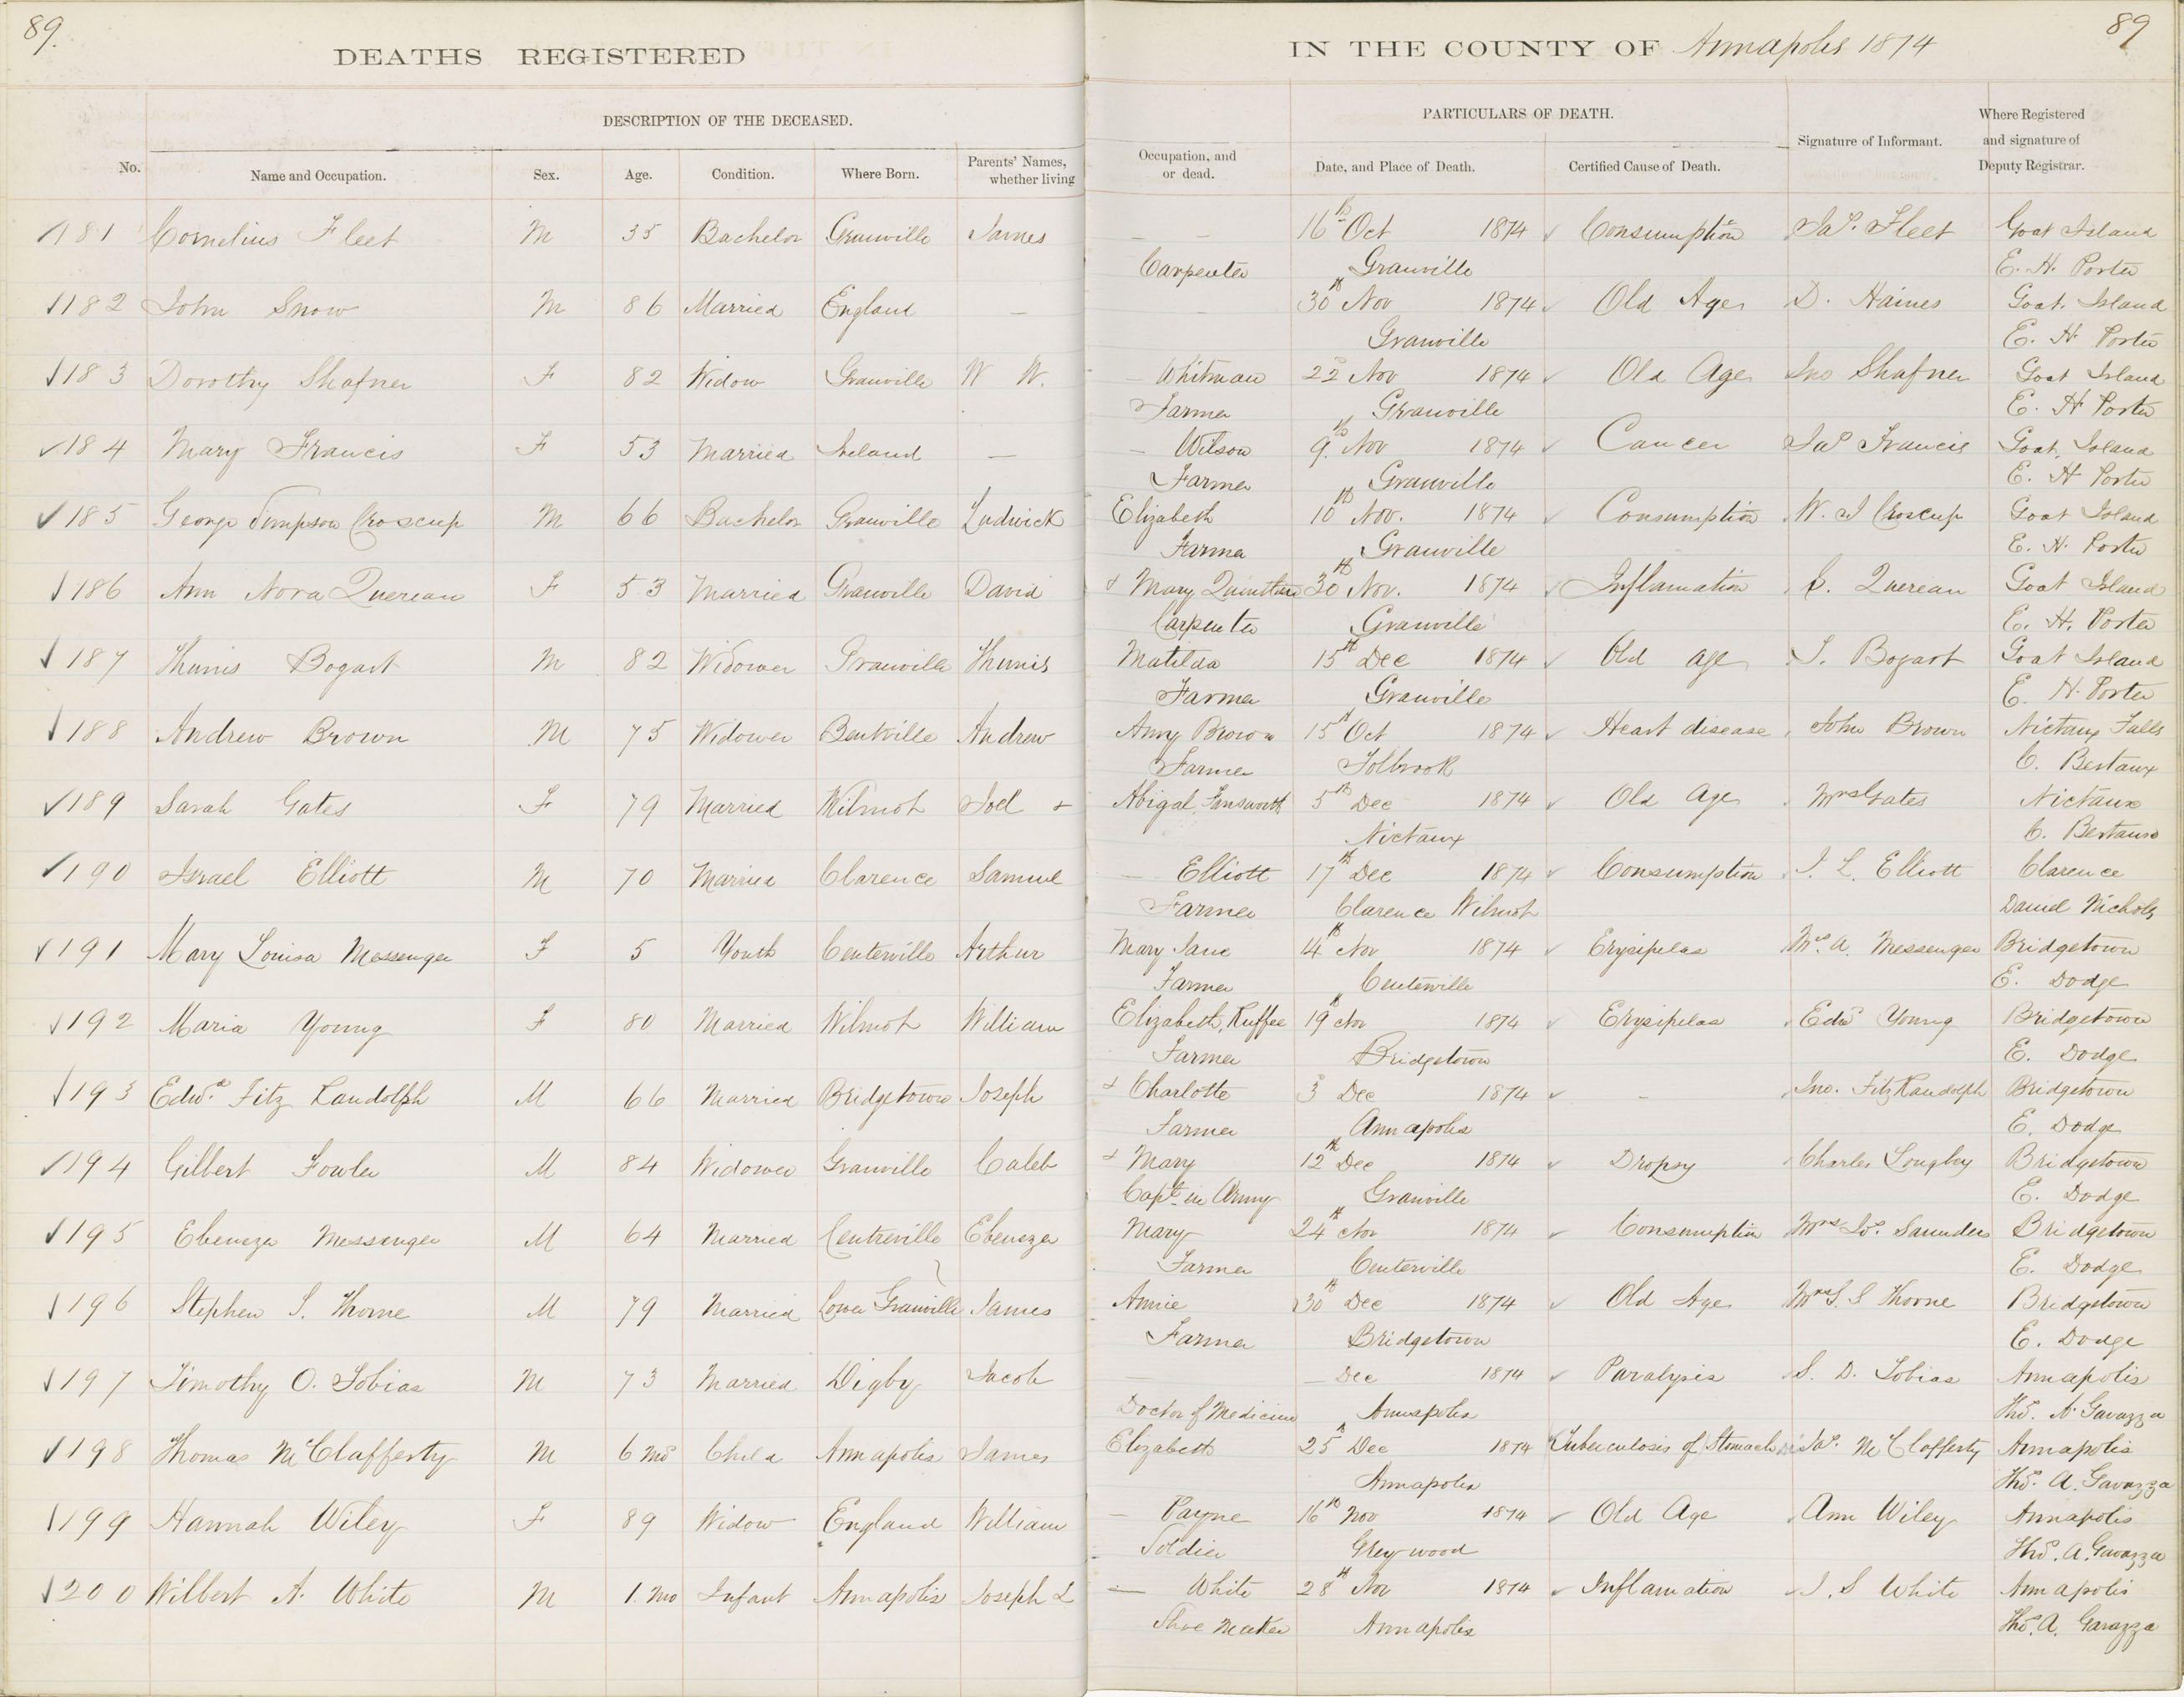 89. 89
DEATHS REGISTERED IN THE COUNTY OF Annapolis 1874
DESCRIPTION OF THE DECEASED. PARTICULARS OF DEATH.
No. Name and Occupation. Sex. Age. Condition. Where Born. Parents' Names, whether living Occupation, and or dead. Date, and Place of Death. Certified Cause of Death. Signature of Informant. Where Registered and signature of Deputy Registrar.
181 Cornelius Fleet M 35 Bachelor Granville James — — 16th Oct 1874 Consumption Jas. Fleet Goat Island
Carpenter Granville E. H. Porter
182 John Snow M 86 Married England — - 30th Nov 1874 Old Age D. Haines Goat Island
Granville E. H Porter
183 Dorothy Shafner F 82 Widow Granville W W. — Whitman 22 Nov 1874 Old Age Jno Shafner Goat Island
Farmer Granville E. H Porter
184 Mary Francis F 53 Married Ireland — — Wilson 9th Nov 1874 Cancer Jas Francis Goat Island
Farmer Granville E. H Porter
185 George Simpson Croscup M 66 Bachelor Granville Ludwick Elizabeth 10th Nov. 1874 Consumption W. J Croscup Goat Island
Farmer Granville E. H. Porter
186 Ann Nora Quereau F 53 Married Granville David & Mary 30th Nov. 1874 Inflamation Quereau Goat Island
Carpenter Granville E. H. Porter
187 Thunis Bogart M 82 Widower Granville Thunis Matilda 15th Dec 1874 Old age T. Bogart Goat Island
Farmer Granville E. H. Porter
188 Andrew Brown M 75 Widower Bentville Andrew Amy Brown 15th Oct 1874 Heart disease John Brown Nictaux Falls
Farmer Tolbrook C. Bertaux
189 Sarah Gates F 79 Married Wilmot Joel & Abigal Farnsworth 5th Dec 1874 Old Age Mrs Gates Nictaux
Nictaux C. Bertaux
190 Israel Elliott M 70 Married Clarence Samuel — Elliott 17th Dec 1874 Consumption I. L. Elliott Clarence
Farmer Clarence Wilmot David Nichols
191 Mary Louisa Messenger F 5 Youth Centerville Arthur Mary Jane 14th Nov 1874 Erysipelas A. Messenger Bridgetown
Farmer Centerville E. Dodge
192 Maria Young F 80 Married Wilmot William Elizabeth Ruffee 19th Nov 1874 Erysipelas Edwd Young Bridgetown
Farmer Bridgetown E. Dodge
193 Edwd. Fitz Randolph M 66 Married Bridgetown Joseph & Charlotte 3 Dec 1874 - Jno. Fitz Randolph Bridgetown
Farmer Annapolis E. Dodge
194 Gilbert Fowler M 84 Widower Granville Caleb & Mary 12th Dec 1874 Dropsy Charles Longley Bridgetown
Capt. in Army Granville E. Dodge
195 Ebenezer Messenger M 64 Married Centreville Ebenezer Mary 24th Nov 1874 Consumption Mrs Saunders Bridgetown
Farmer Centerville E. Dodge
196 Stephen S. Thorne M 79 Married Lower Granville James Annie 30th Dec 1874 Old Age Mrs S. S Thorne Bridgetown
Farmer Bridgetown E. Dodge
197 Timothy O. Tobias M 73 Married Digby Jacob — — Dec 1874 Paralysis S. D. Tobias Annapolis
Doctor of Medicine Annapolis Thos. A Gavazza
198 Thomas McClafferty M 6 Mos Child Annapolis James Elizabeth 25th Dec 1874 Tuberculosis of Stomach Jas. McClafferty Annapolis
Annapolis Thos. A. Gavazza
199 Hannah Wiley F 89 Widow England William — Payne 16th Nov 1874 Old Age Ann Wiley Annapolis
Soldier Greywood Thos. A. Gavazza
200 Wilbert A. White M 1. Mo Infant Annapolis Joseph L — White 28th Nov 1874 Inflamation J. S White Annapolis
Shoe Maker Annapolis Thos. A. Gavazza